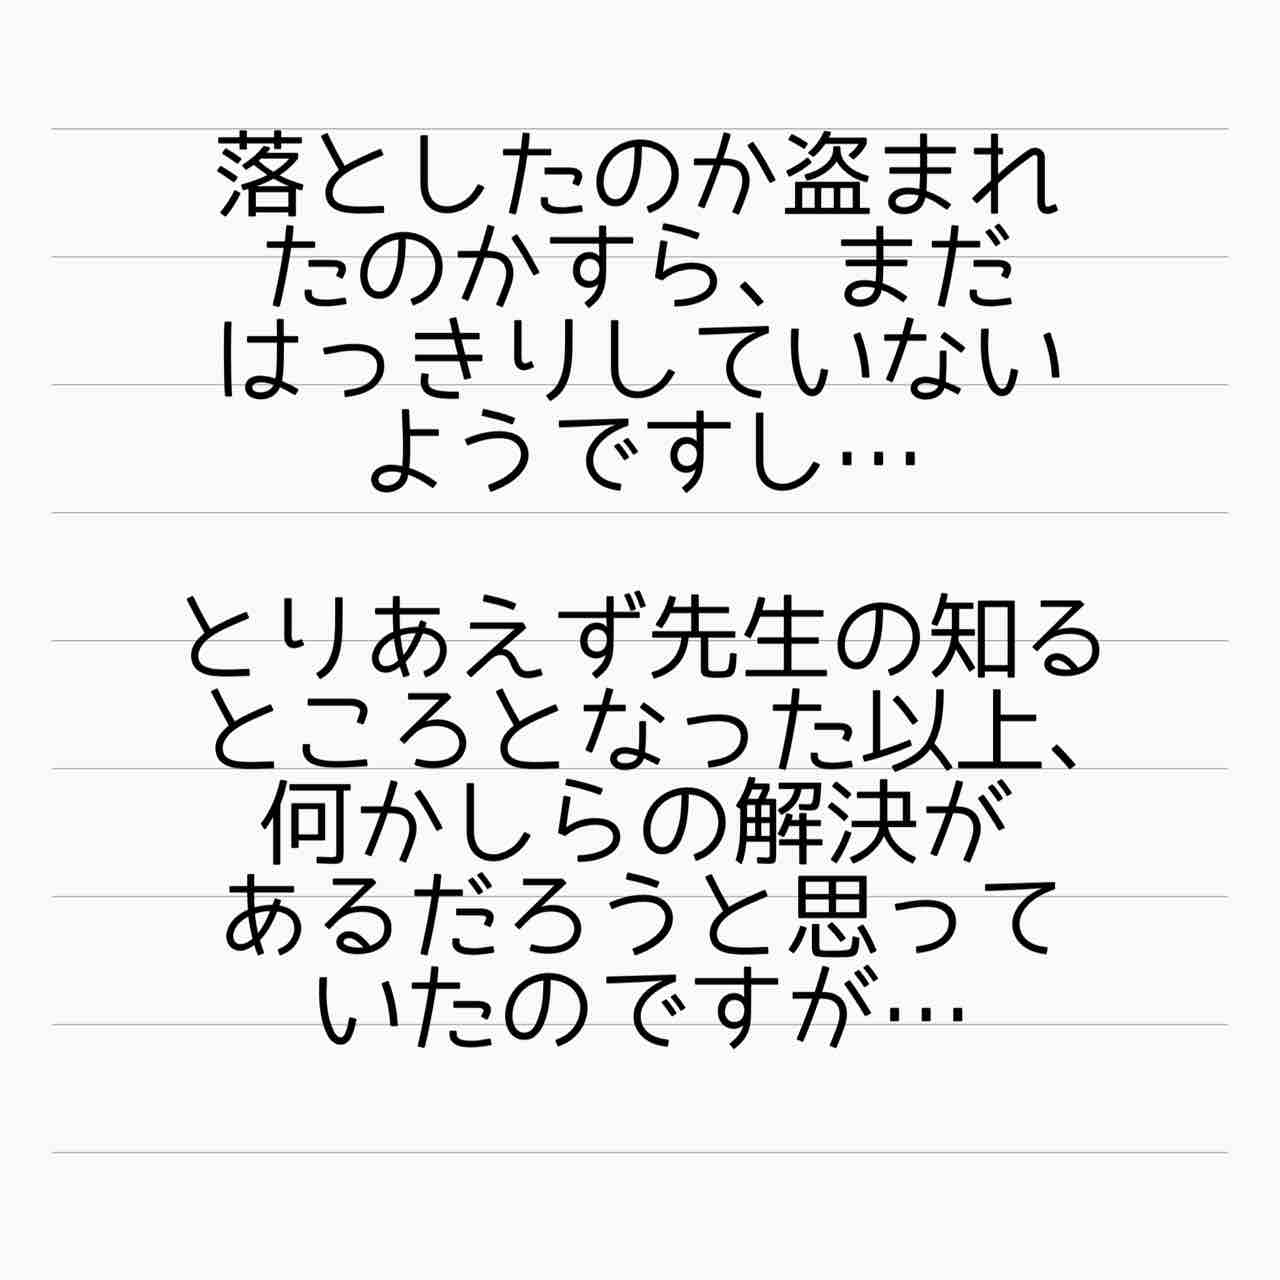 落としたのか盗まれ
たのかすら、まだ
はっきりしていない
ようですし…
とりあえず先生の知る
ところとなった以上、
何かしらの解決が
あるだろうと思って
いたのですが…